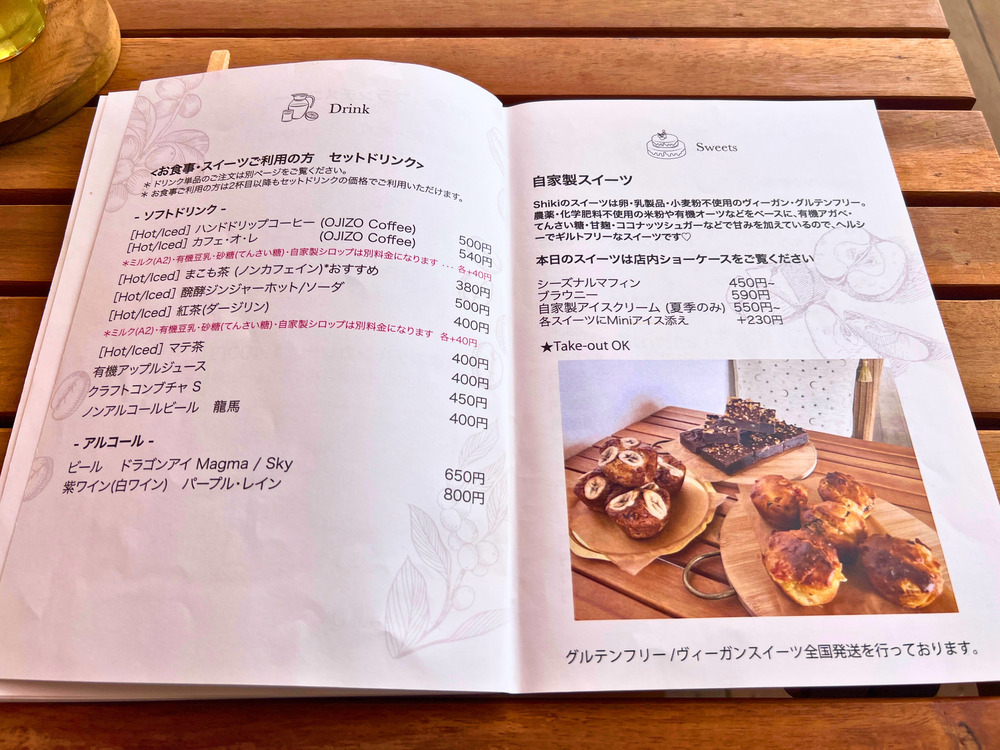 Drink
<お食事・スイーツご利用の方　セットドリンク>
＊ドリンク単品のご注文は別ページをご覧ください。
＊お食事ご利用の方は2杯目以降もセットドリンクの価格でご利用いただけます。
- ソフトドリンク -
[Hot/Iced] ハンドドリップコーヒー (OJIZO Coffee) 500円
[Hot/Iced] カフェ・オ・レ (OJIZO Coffee) 540円
＊ミルク(A2)・有機豆乳・砂糖(てんさい糖)・自家製シロップは別料金になります … 各+40円
[Hot/Iced] まこも茶 (ノンカフェイン)*おすすめ 380円
[Hot/Iced] 醗酵ジンジャーホット/ソーダ 500円
[Hot/Iced] 紅茶(ダージリン) 400円
＊ミルク(A2)・有機豆乳・砂糖(てんさい糖)・自家製シロップは別料金になります 各+40円
[Hot/Iced] マテ茶 400円
有機アップルジュース 400円
クラフトコンブチャ S 450円
ノンアルコールビール　龍馬 400円
- アルコール -
ビール　ドラゴンアイ Magma / Sky 650円
紫ワイン(白ワイン)　パープル・レイン 800円
Sweets
自家製スイーツ
Shikiのスイーツは卵・乳製品・小麦粉不使用のヴィーガン・グルテンフリー。
農薬・化学肥料不使用の米粉や有機オーツなどをベースに、有機アガベ・
てんさい糖・甘麹・ココナッツシュガーなどで甘みを加えているので、ヘルシ
ーでギルトフリーなスイーツです♡
本日のスイーツは店内ショーケースをご覧ください
シーズナルマフィン 450円~
ブラウニー 590円
自家製アイスクリーム (夏季のみ) 550円~
各スイーツにMiniアイス添え +230円
★Take-out OK
グルテンフリー/ヴィーガンスイーツ全国発送を行っております。